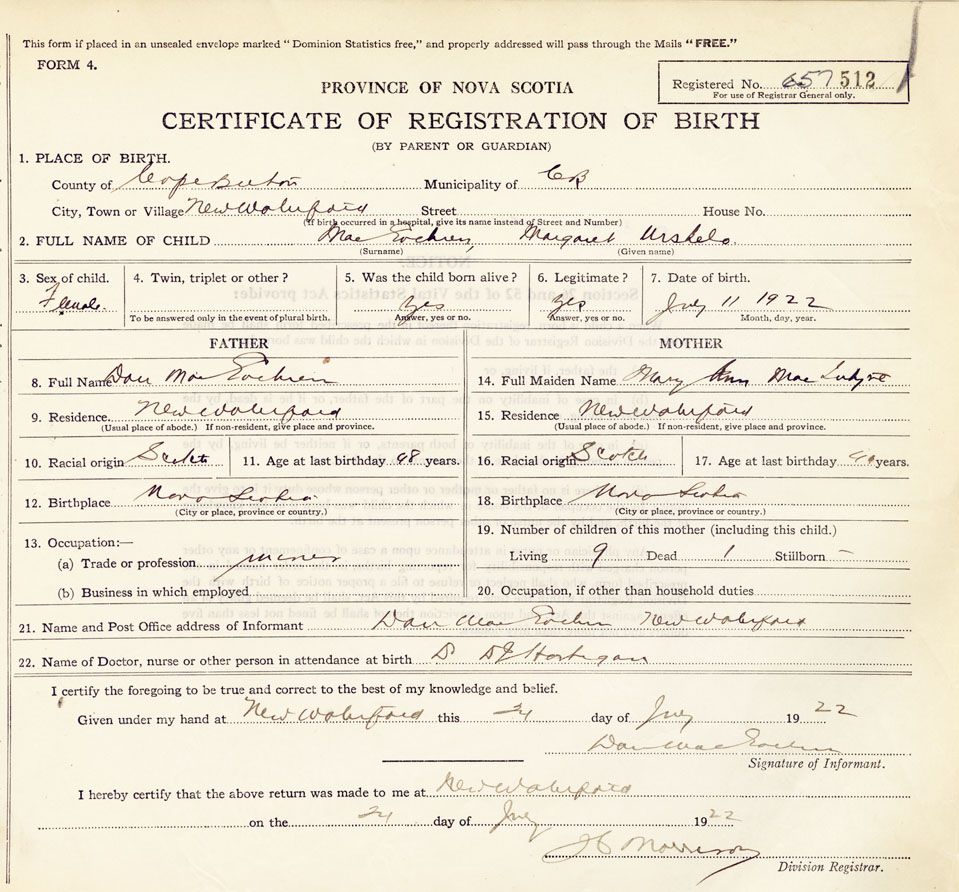 This form if placed in an unsealed envelope marked "Dominion Statistics free," and properly addressed will pass through the Mails "FREE."
FORM 4.
Registered No. 657 512
For use of Registrar General only.
PROVINCE OF NOVA SCOTIA
CERTIFICATE OF REGISTRATION OF BIRTH
(BY PARENT OR GUARDIAN)
1. PLACE OF BIRTH.
County of Cape Breton Municipality of CB
City, Town or Village New Waterford Street House No.
(If birth occurred in a hospital, give its name instead of Street and Number)
2. FULL NAME OF CHILD Mac Eachren, Margaret
(Surname) (Given name)
3. Sex of child. 4. Twin, triplet or other? 5. Was the child born alive? 6. Legitimate? 7. Date of birth.
Female. Yes Yes July 11 1922
To be answered only in the event of plural birth. Answer, yes or no. Answer, yes or no. Month, day, year.
FATHER MOTHER
8. Full Name Dan Mac Eachren 14. Full Maiden Name Mary Ann Mac
9. Residence New Waterford 15. Residence New Waterford
(Usual place of abode.) If non-resident, give place and province. (Usual place of abode.) If non-resident, give place and province.
10. Racial origin Scotch 11. Age at last birthday 48 years. 16. Racial origin Scotch 17. Age at last birthday years.
12. Birthplace Nova Scotia 18. Birthplace Nova Scotia
(City or place, province or country.) (City or place, province or country.)
13. Occupation:— 19. Number of children of this mother (including this child.)
(a) Trade or profession miner Living 9 Dead 1 Stillborn –
(b) Business in which employed 20. Occupation, if other than household duties
21. Name and Post Office address of Informant Dan Mac Eachren New Waterford
22. Name of Doctor, nurse or other person in attendance at birth Hartigan
I certify the foregoing to be true and correct to the best of my knowledge and belief.
Given under my hand at New Waterford this day of July 1922
Dan Mac Eachren
Signature of Informant.
I hereby certify that the above return was made to me at New Waterford
on the day of July 1922
Morrison
Division Registrar.